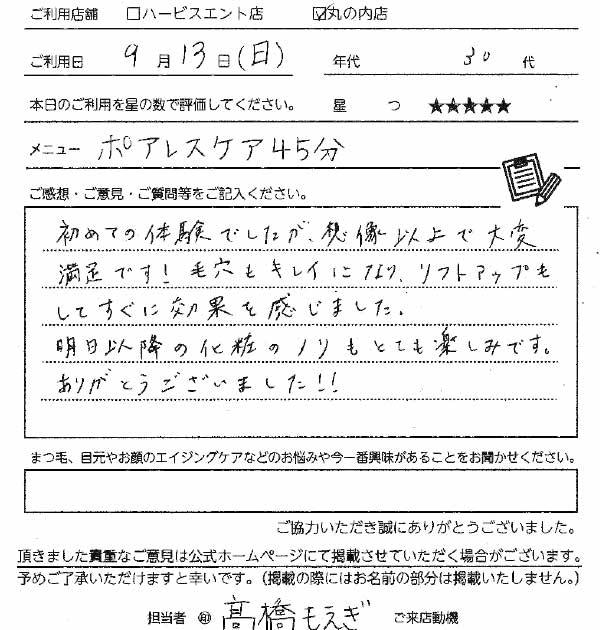 ご利用店舗 □ハービスエント店 ☑丸の内店
ご利用日 9月13日(日) 年代 30代
本日のご利用を星の数で評価してください。 星 つ ★★★★★
メニュー ポアレスケア45分
ご感想・ご意見・ご質問等をご記入ください。
初めての体験でしたが、想像以上で大変
満足です！毛穴もキレイになり、リフトアップも
してすぐに効果を感じました。
明日以降の化粧のノリもとても楽しみです。
ありがとうございました!!
まつ毛、目元やお顔のエイジングケアなどのお悩みや今一番興味があることをお聞かせください。
ご協力いただき誠にありがとうございました。
頂きました貴重なご意見は公式ホームページにて掲載させていただく場合がございます。
予めご了承いただけますと幸いです。（掲載の際にはお名前の部分は掲載いたしません。）
担当者 ㊞ 髙橋もえぎ ご来店動機